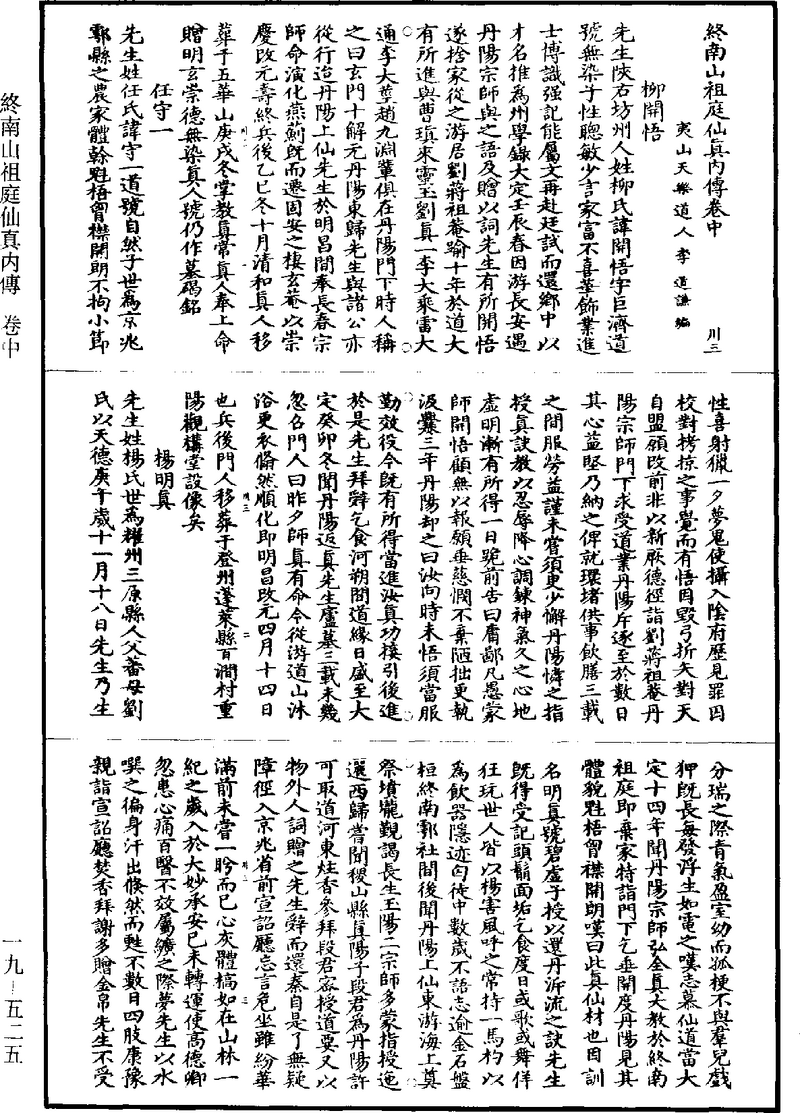 終南山祖庭仙真內傳卷中
川三
夷山天樂道人李道謙編
柳開悟
先生陝右坊州人姓柳氏諱開悟字巨濟道
號無染子性聰敏少言家富不喜華飾業進
士博識强記能屬文再赴廷試而還鄉中以
才名推為州學錄大定壬辰春因游長安遇
丹陽宗師與之語及贈以詞先生有所開悟
遂捨家從之游居劉蔣祖菴踰十年於道大
有所進與曹瑱來靈玉劉真一李大乘雷大
通李大莘趙九淵輩俱在丹陽門下時人稱
之曰玄門十解元丹陽東歸先生與諸公亦
從行迨丹陽上仙先生於明昌間奉長春宗
師命演化燕薊既而遷固安之棲玄菴以崇
慶改元壽終兵後乙巳冬十月清和真人移
葬于五華山庚戌冬掌教真常真人奉上命
贈明玄崇德無染真人號仍作墓碣銘
任守一
先生姓任氏諱守一道號自然子世為京兆
鄠縣之農家體幹魁梧胷襟開朗不拘小節
性喜射獵一夕夢鬼使攝入陰府歷見罪囚
校對拷掠之事覺而有悟因毀弓折矢對天
自盟願改前非以新厥德徑詣劉蔣祖菴丹
陽宗師門下求受道業丹陽斥逐至於數日
其心益堅乃納之俾就環堵供事飲膳三載
之間服勞益謹未嘗須臾少懈丹陽憐之指
授真訣教以忍辱降心調鍊神氣久之心地
虛明漸有所得一日跪前告曰庸鄙凡愚蒙
師開悟顧無以報願垂慈憫不棄陋拙更執
汲爨三年丹陽却之曰汝向時未悟須當服
勤效役今既有所得當進汝真功接引後進
於是先生拜辭乞食河朔間道緣日盛至大
定癸卯冬聞丹陽返真先生廬墓三載未幾
忽召門人曰昨夕師真有命令從游道山沐
浴更衣翛然順化即明昌改元四月十四日
也兵後門人移葬于登州蓬萊縣百澗村重
陽觀構堂設像矣
楊明真
先生姓楊氏世為耀州三原縣人父蕃母劉
氏以天德庚午歲十一月十八日先生乃生
分瑞之際青氣盈室幼而孤梗不與羣兒戲
狎既長每發浮生如電之嘆志慕仙道當大
定十四年聞丹陽宗師弘全真大教於終南
祖庭即棄家特詣門下乞垂開度丹陽見其
體貌魁梧胷襟開朗嘆曰此真仙材也因訓
名明真號碧虛子授以還丹泝流之訣先生
既得受記頭髼面垢乞食度日或歌或舞佯
狂玩世人皆以楊害風呼之常持一馬杓以
為飲器隱迹匃徒中數歲不語志逾金石盤
桓終南鄠社間後聞丹陽上仙東游海上奠
祭墳壠覲謁長生玉陽二宗師多蒙指授迤
邐西歸嘗聞稷山縣真陽子段君為丹陽許
可取道河東炷香參拜段君密授道要又以
物外人詞贈之先生辭而還秦自是了無疑
障徑入京兆省前宣詔廳忘言危坐雖紛華
滿前未嘗一眄而已心灰體槁如在山林一
紀之歲入於大妙承安己未轉運使高德卿
忽患心痛百醫不效屬纊之際夢先生以水
噀之徧身汗出倏然而甦不數日四肢康豫
親詣宣詔廳焚香拜謝多贈金帛先生不受
終南山祖庭仙真內傳　卷中
一九－五二五